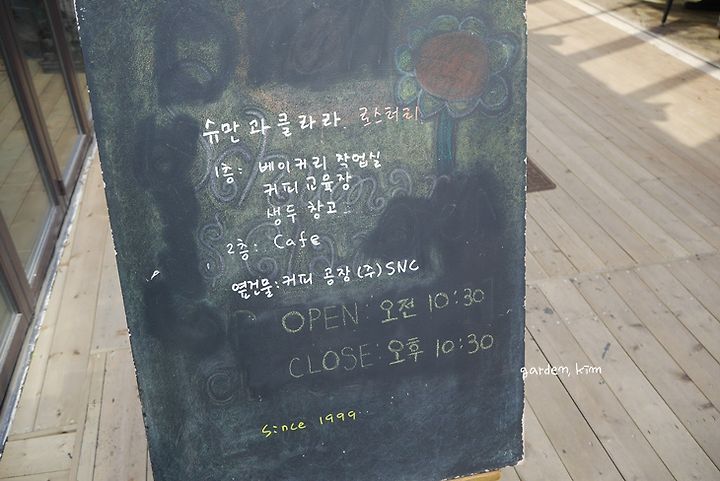 슈만과클라라 로스터리
1층: 베이커리 작업실
커피교육장
생두 창고
2층: Cafe
옆건물:커피 공장 (주)SNC
OPEN: 오전 10:30
CLOSE: 오후 10:30
Since 1999
garden, kim